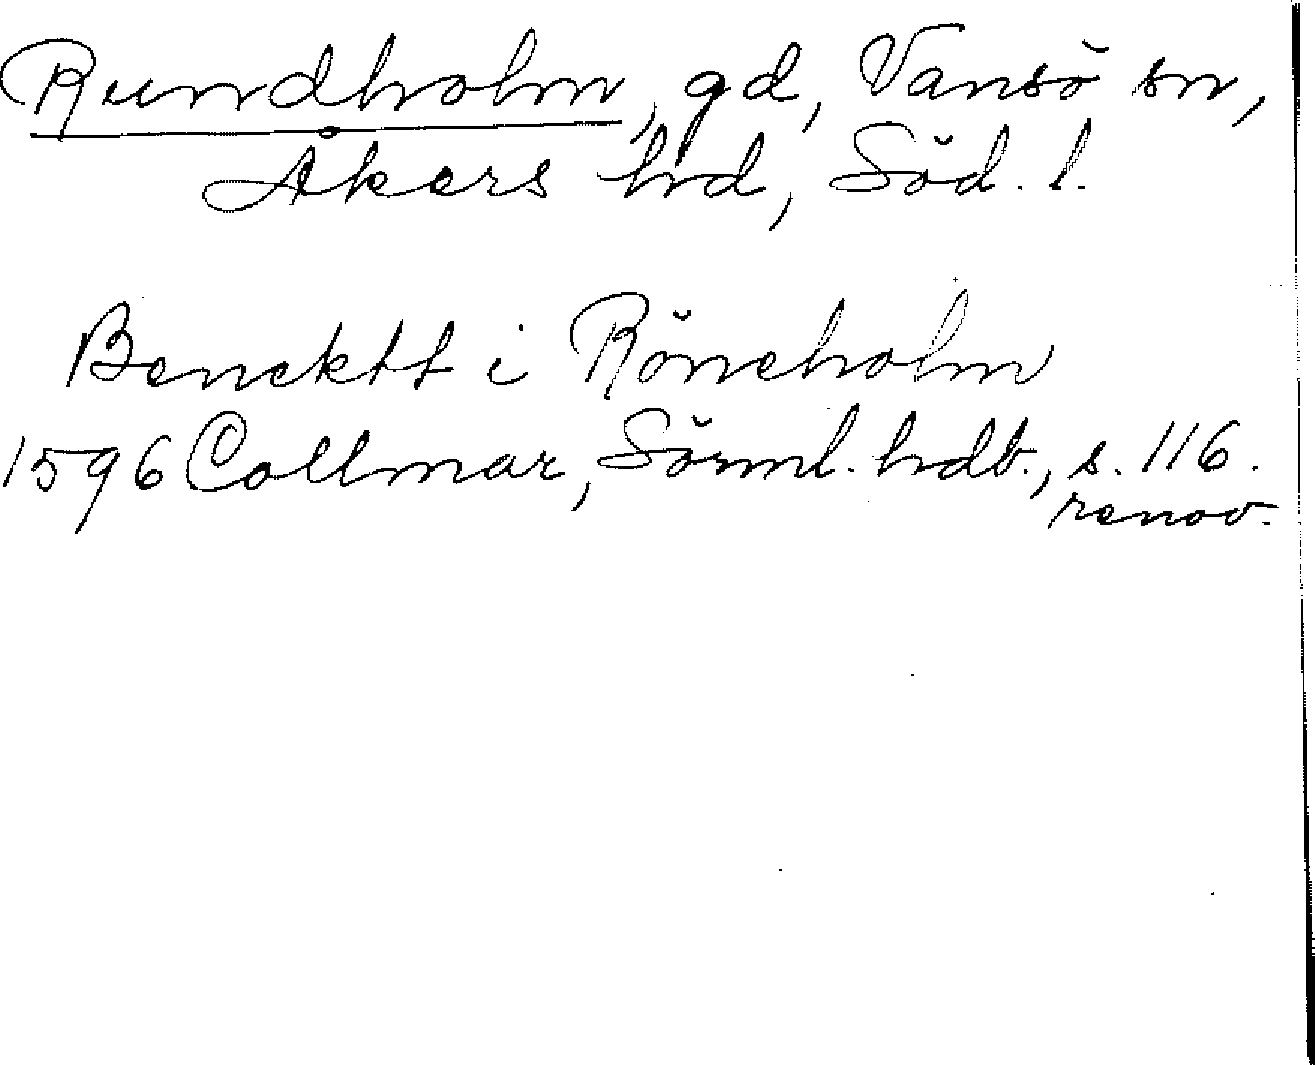 Rundholm, gd, Vansö sn,
Åkers hd, Söd. l.
Bencktt i Röneholm
1596 Collmar, Sörml. hdb., s. 116.
renov.